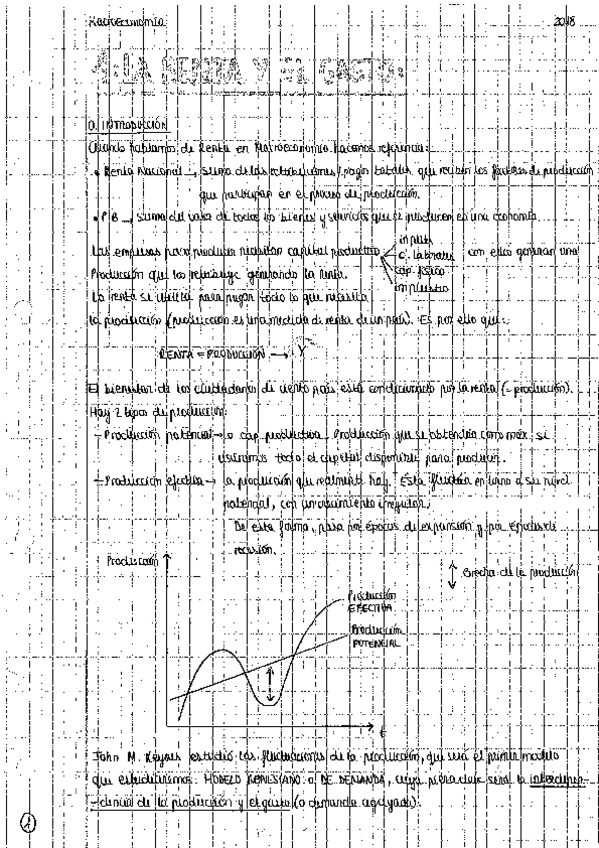 Macroeconomía 2018
1. LA RENTA Y EL GASTO:
0. INTRODUCCIÓN
Cuando hablamos de Renta en Macroeconomía hacemos referencia:
• Renta Nacional → suma de las retribuciones/pagos totales que reciben los factores de producción
que participan en el proceso de producción.
• PIB → suma del valor de todos los bienes y servicios que se producen en una economía.
Las empresas para producir necesitan capital productivo
inputs
c. laborales
cap. físico
impuestos
con ellos generan una
Producción que los generando la renta.
La renta se utiliza para pagar todo lo que necesita
la producción (producción es una medida de renta de un país). Es por ello que:
RENTA = PRODUCCIÓN → Y
El bienestar de los ciudadanos de cierto país está condicionado por la renta (= producción).
Hay 2 tipos de producción:
- Producción potencial → o cap. productiva. Producción que se obtendría como máx. si
usáramos todo el capital disponible para producir.
- Producción efectiva → la producción que realmente hay. Esta fluctúa en torno a su nivel
potencial, con un crecimiento irregular.
De esta forma, pasa por épocas de expansión y por épocas de
recesión.
Producción
Brecha de la producción
Producción
EFECTIVA
Producción
POTENCIAL
t
John M. Keynes estudió las fluctuaciones de la producción, que será el primer modelo
que estudiaremos: MODELO KEYNESIANO o DE DEMANDA, cuya será la interdepen-
-dencia de la producción y el gasto (o demanda agregada).
1